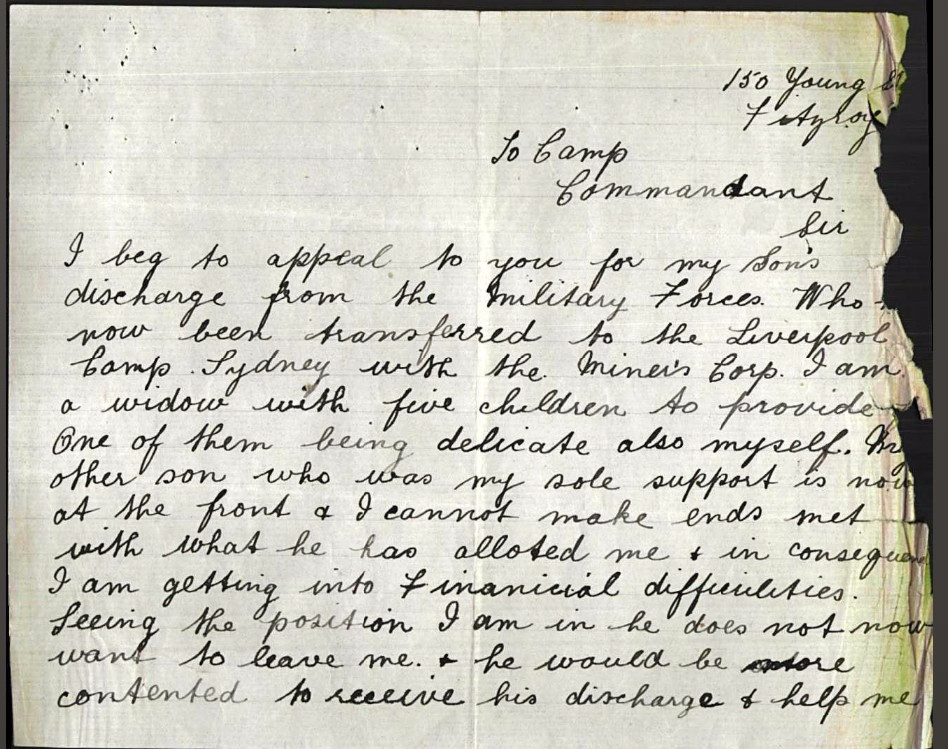 150 Young St
Fitzroy
To Camp
Commandant
Sir
I beg to appeal to you for my Son's
discharge from the Military Forces. Who
now been transferred to the Liverpool
Camp. Sydney with the. Miner's Corp. I am
a widow with five children to provide
One of them being delicate also myself. My
other son who was my sole support is now
at the front & I cannot make ends met
with what he has alloted me & in consequen
I am getting into Finanicial difficulities.
Seeing the position I am in he does not now
want to leave me. & he would be more
contented to receive his discharge & help me